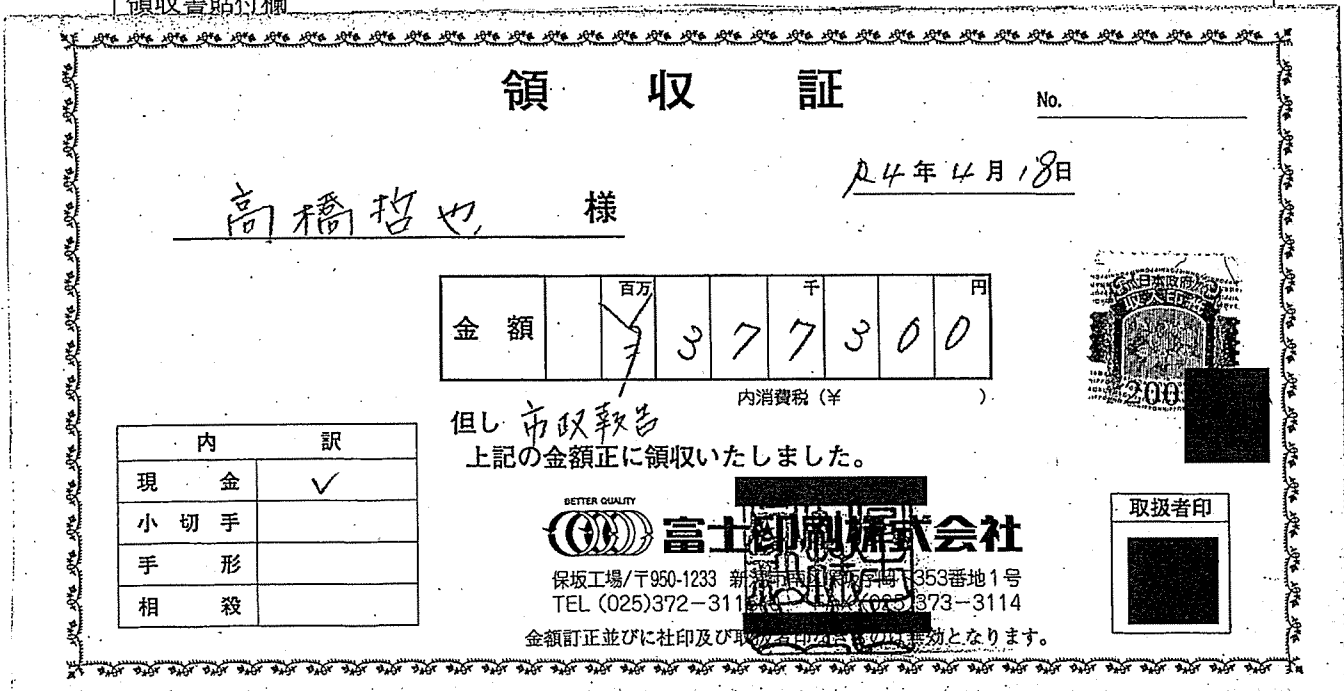 領収書貼付欄
領 収 証
No.
R4年4月18日
高橋哲也 様
金額 百万 千 円
¥ 3 7 7 3 0 0
内消費税(¥ )
但し 市政報告
上記の金額正に領収いたしました。
内 訳
現 金 ✓
小 切 手
手 形
相 殺
日本政府
200
BETTER QUALITY
富士印刷株式会社
保坂工場/〒950-1233 新潟市南区保坂字前353番地1号
TEL (025)372-311 (025)373-3114
取扱者印
金額訂正並びに社印及び取扱者印なきものは無効となります。